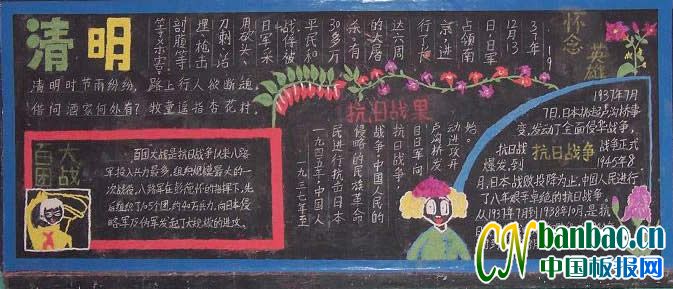 清明
清明时节雨纷纷，路上行人欲断魂。
借问酒家何处有？牧童遥指杏花村。
怀念
英雄
19
37年
12月13
日，日军
占领南
京，进
行了
达六周
的大屠
杀，有
30多万
平民和
战俘被
日军采
用砍头、
刀刺、活
埋、枪击
剖腹等
百团
大战
百团大战是抗日战争以来八路
军投入兵力最多，组织规模最大的一
次战役，八路军在彭德怀的指挥下，先
后组织了105个团，约40万兵力，向日本侵
略军及伪军发起了大规模的进攻。
抗日战果
一九三七年至
一九四五年，中国人
民进行抗击日本
侵略的民族革命
战争，中国人民的
抗日战争，
日日军向
卢沟桥发
动进攻开
始。
1937年7月
7日，日本挑起卢沟桥事
变，发动了全面侵华战争，
抗日战
抗日战争
战争正式
爆发，到
1945年8
月，日本战败投降为止，中国人民进行
了八年艰辛卓绝的抗日战争，
从1937年7月到1938年10月，是抗
CNbanbao.cn
中国板报网